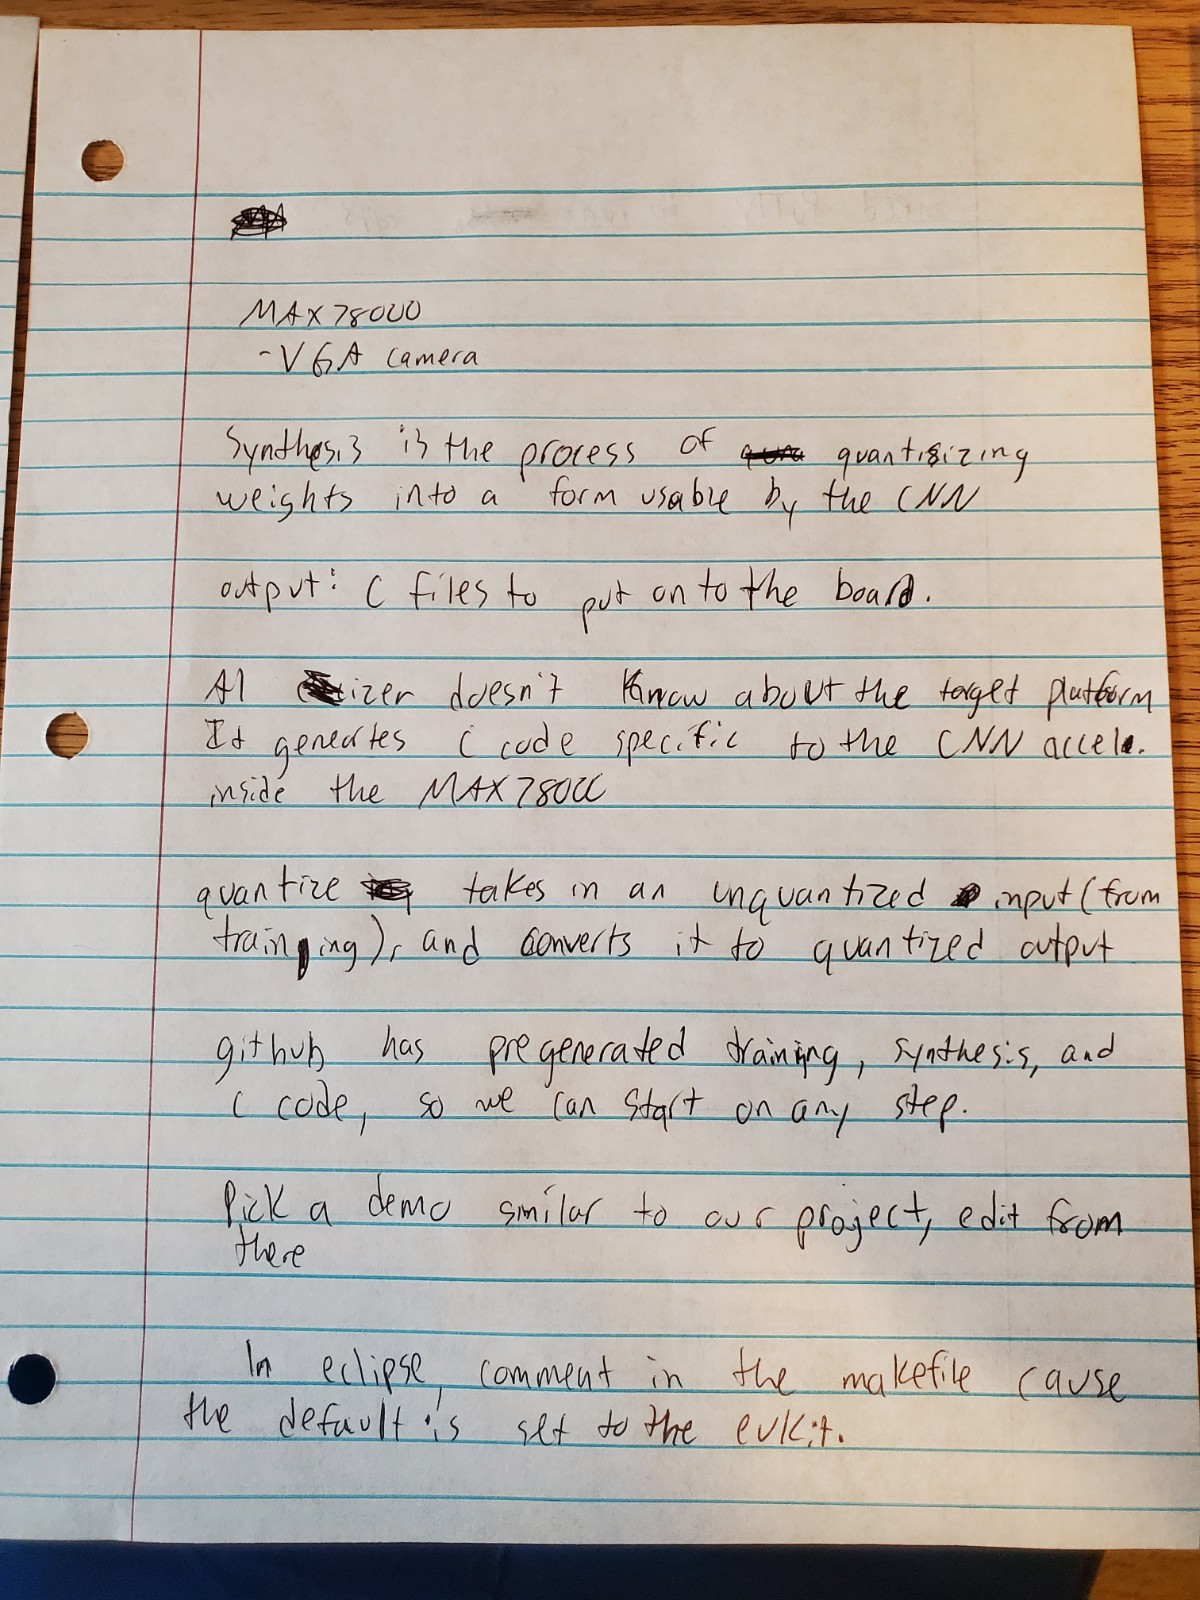 MAX78000
-VGA camera
Synthesis is the process of quantisizing
weights into a form usable by the CNN
output: C files to put on to the board.
AI izer doesn't know about the target platform
It genertes C code specific to the CNN accele.
inside the MAX78000
quantize takes in an unquantized input (from
training), and converts it to quantized output
github has pregenerated training, synthesis, and
C code, so we can start on any step.
Pick a demo similar to our project, edit from
there
In eclipse, comment in the makefile cause
the default is set to the evkit.